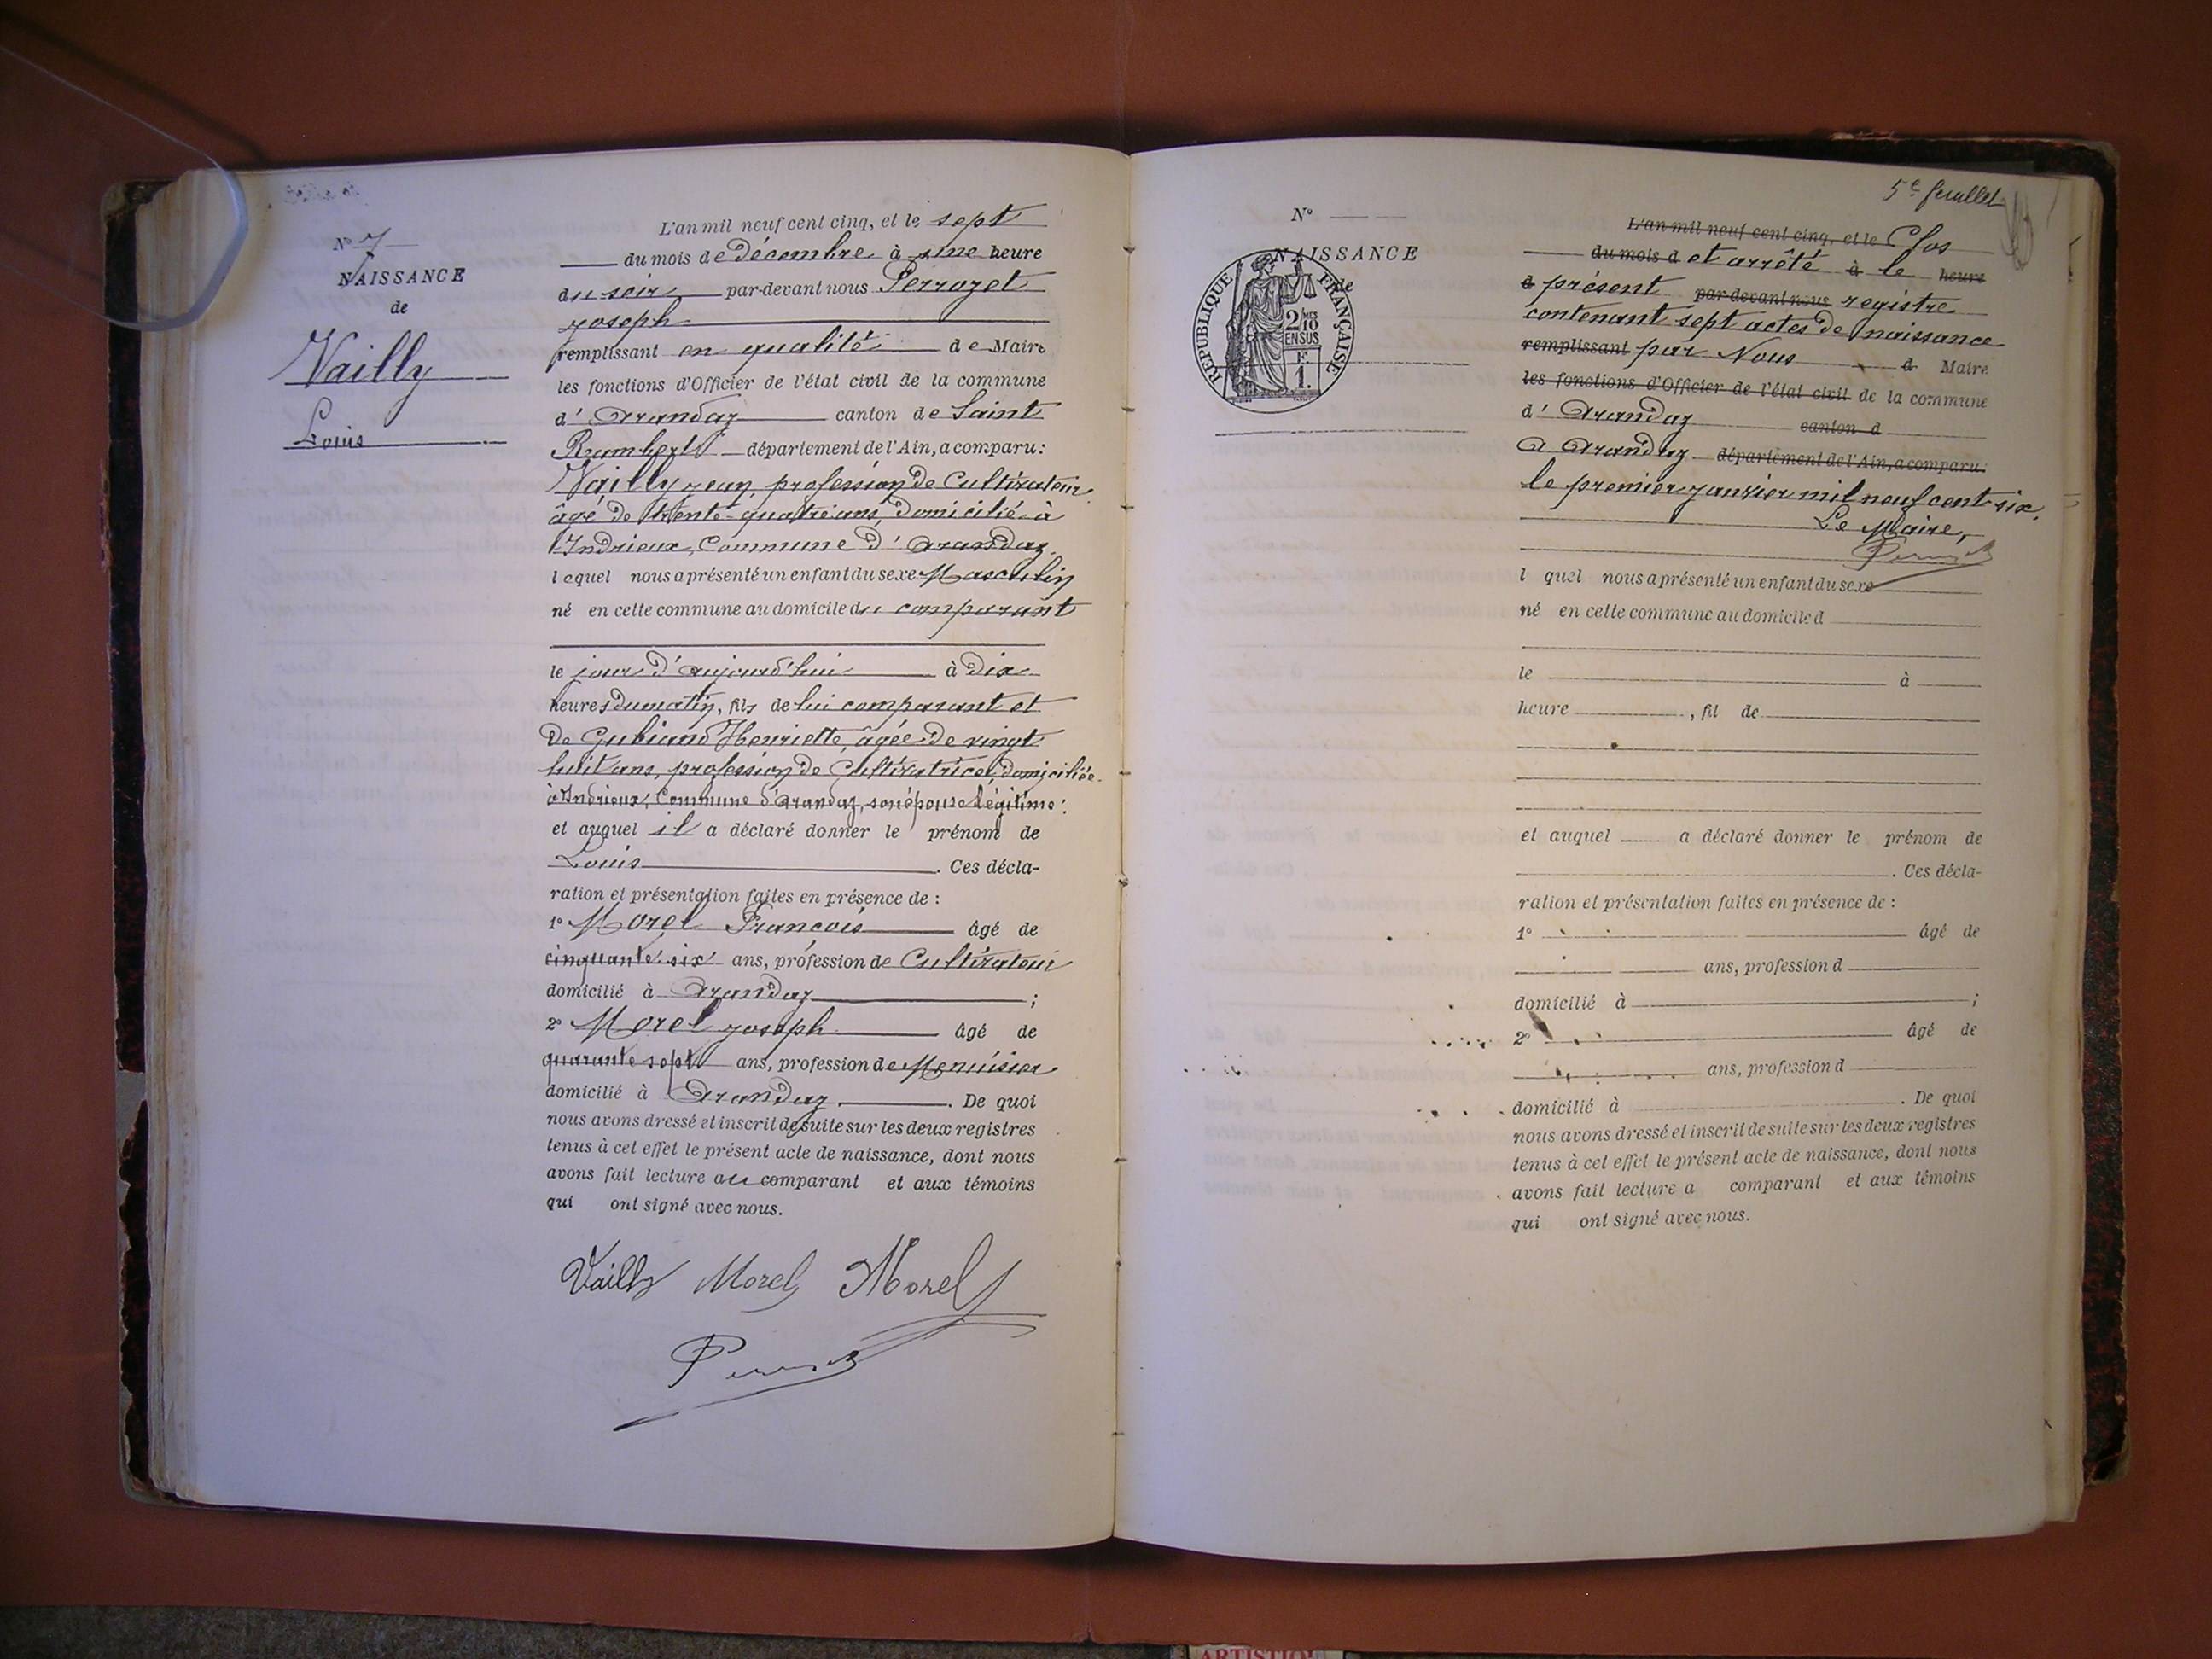 N° 7
NAISSANCE
de
Vailly
Louis
L'an mil neuf cent cinq, et le sept
du mois de décembre à une heure
du soir par-devant nous Perrozet
Joseph
remplissant en qualité de Maire
les fonctions d'Officier de l'état civil de la commune
d'Arandaz canton de Saint
Rambert département de l'Ain, a comparu:
Vailly Jean, profession de Cultivateur,
âgé de trente-quatre ans, domicilié à
Indrieux, Commune d'Arandaz.
lequel nous a présenté un enfant du sexe Masculin
né en cette commune au domicile du comparant
le jour d'aujourd'hui à Dix
heures du matin, fils de lui comparant et
De Gubiand Henriette, âgée de vingt
huit ans, profession de Cultivatrice, domiciliée
à Indrieux, Commune d'Arandaz, son épouse légitime:
et auquel il a déclaré donner le prénom de
Louis. Ces décla-
ration et présentation faites en présence de :
1° Morel François âgé de
cinquante six ans, profession de Cultivateur
domicilié à Arandaz ;
2° Morel Joseph âgé de
quarante sept ans, profession de Menuisier
domicilié à Arandaz. De quoi
nous avons dressé et inscrit de suite sur les deux registres
tenus à cet effet le présent acte de naissance, dont nous
avons fait lecture au comparant et aux témoins
qui ont signé avec nous.
Vailly Morel Morel
5e feuillet
N°
NAISSANCE
de
RÉPUBLIQUE FRANÇAISE
2/10 MES
EN SUS
F
1.
L'an mil neuf cent cinq, et le Clos
du mois d et arrêté à le heure
d présent par-devant nous registre
contenant sept actes de naissance
remplissant par Nous d Maire
les fonctions d'Officier de l'état civil de la commune
d'Arandaz canton d
A Arandaz département de l'Ain, a comparu:
le premier janvier mil neuf cent six.
Le Maire,
l quel nous a présenté un enfant du sexe
né en cette commune au domicile d
le à
heure , fil de
et auquel a déclaré donner le prénom de
. Ces décla-
ration et présentation faites en présence de :
1° âgé de
ans, profession d
domicilié à ;
2° âgé de
ans, profession d
domicilié à . De quoi
nous avons dressé et inscrit de suite sur les deux registres
tenus à cet effet le présent acte de naissance, dont nous
avons fait lecture a comparant et aux témoins
qui ont signé avec nous.
ARTISTIQ